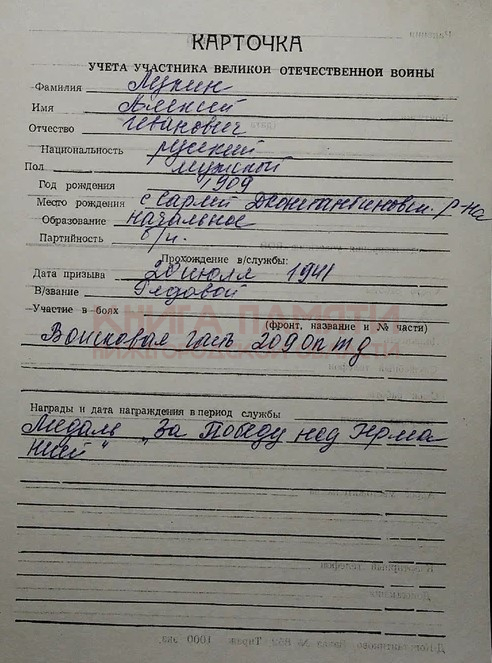 КАРТОЧКА
УЧЕТА УЧАСТНИКА ВЕЛИКОЙ ОТЕЧЕСТВЕННОЙ ВОЙНЫ
Фамилия Лукин
Имя Алексий
Отчество Иванович
Национальность русский
Пол мужской
Год рождения 1909
Место рождения с Сарлей Дконстантиновск. р-на
Образование начальное
Партийность б/п.
Прохождение в/службы:
Дата призыва 20 июля 1941
В/звание Рядовой
Участие в боях
(фронт, название и № части)
КНИГА ПАМЯТИ
НИЖЕГОРОДСКОЙ ОБЛАСТИ
Войсковая часть 209 оптд
Награды и дата награждения в период службы
Медаль „За Победу над Герма
нией"